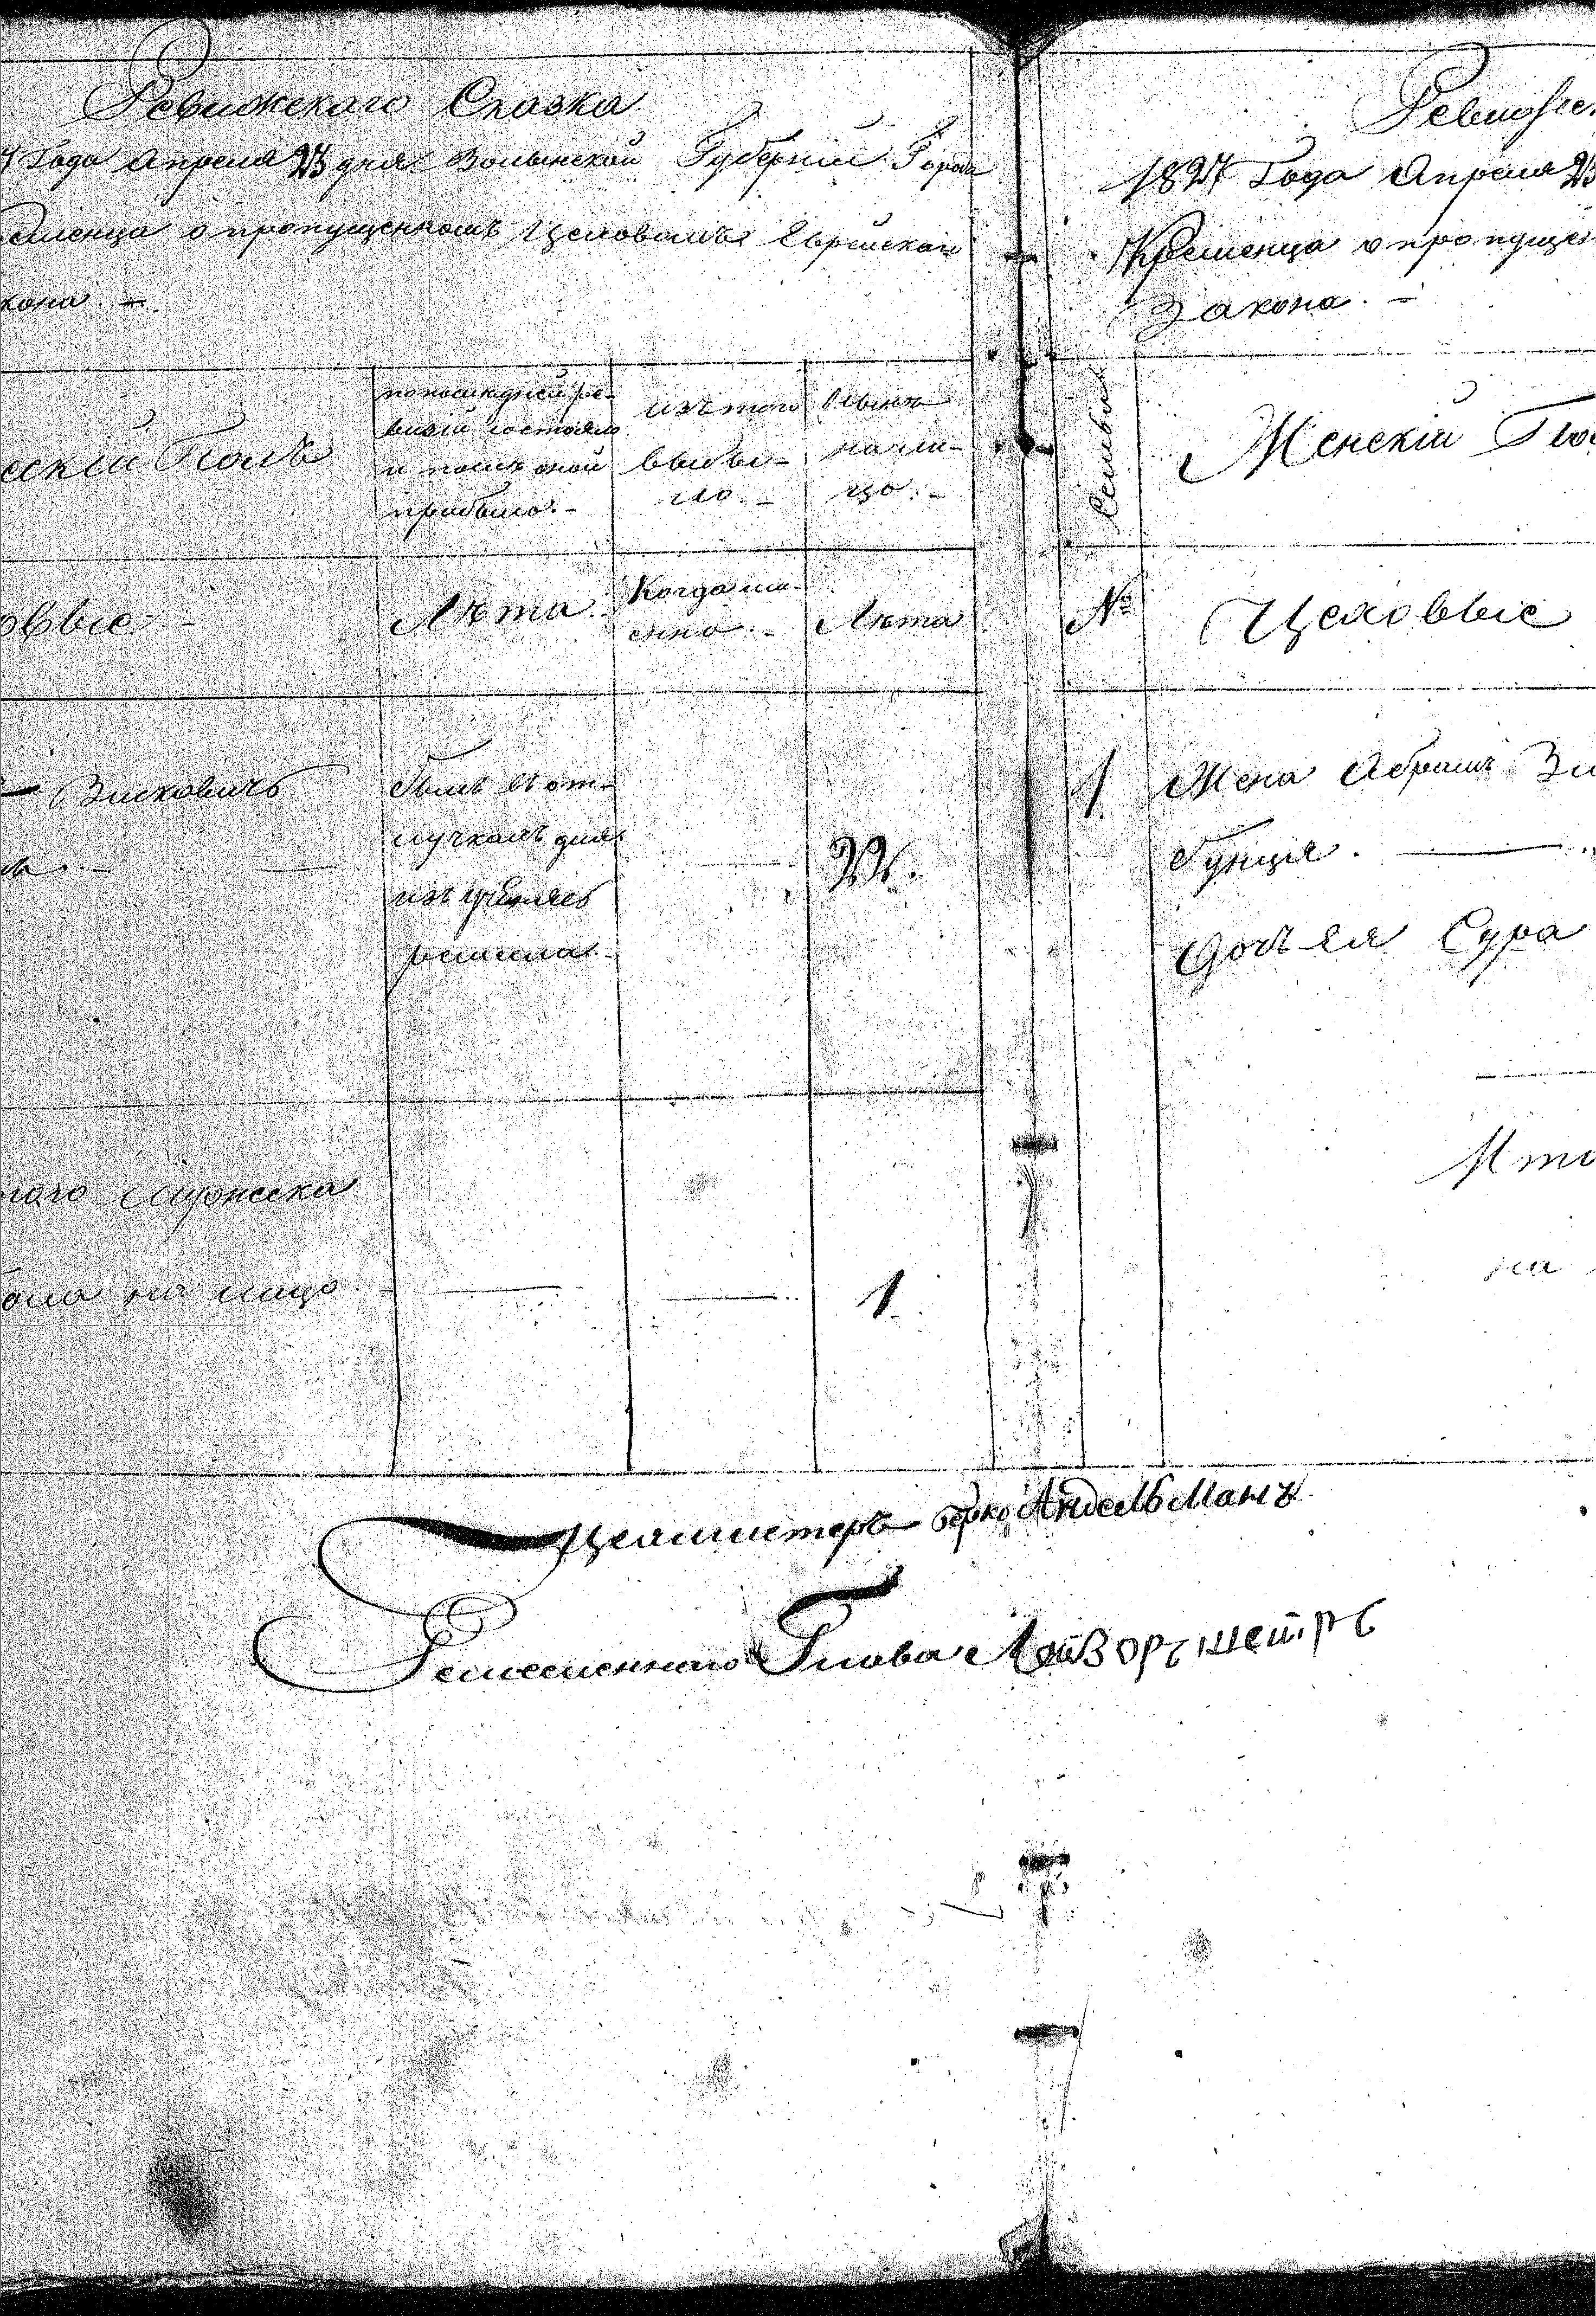 Ревижскаго Сказка
7 Года Апреля 23 дня Волынской Губерніи Города
еменца о пропущенномъ Цеховомъ Еврейскаго
кона. —
ескій Полъ
по последней ре-
визіи состояло
и после оной
прибыло. —
изъ того
выбы-
ло. —
ныне
на ли-
цо. —
овые —
Лета
Когда им-
енно. —
Лета
— Зисковичъ
былъ въ от-
лучкахъ для
ремесла. —
того мужеска
ола на лицо
1.
Ревижс
1827 Года Апреля 23
Кременца о пропуще
Закона. —
Семьи
Женскій Пол
№
Цеховые
1. Жена Абрамъ Зи
Бунція. —
Дочь ея Сура
Ито
на
Цехмистеръ Берко Андельманъ
Ремесленнаго Глова